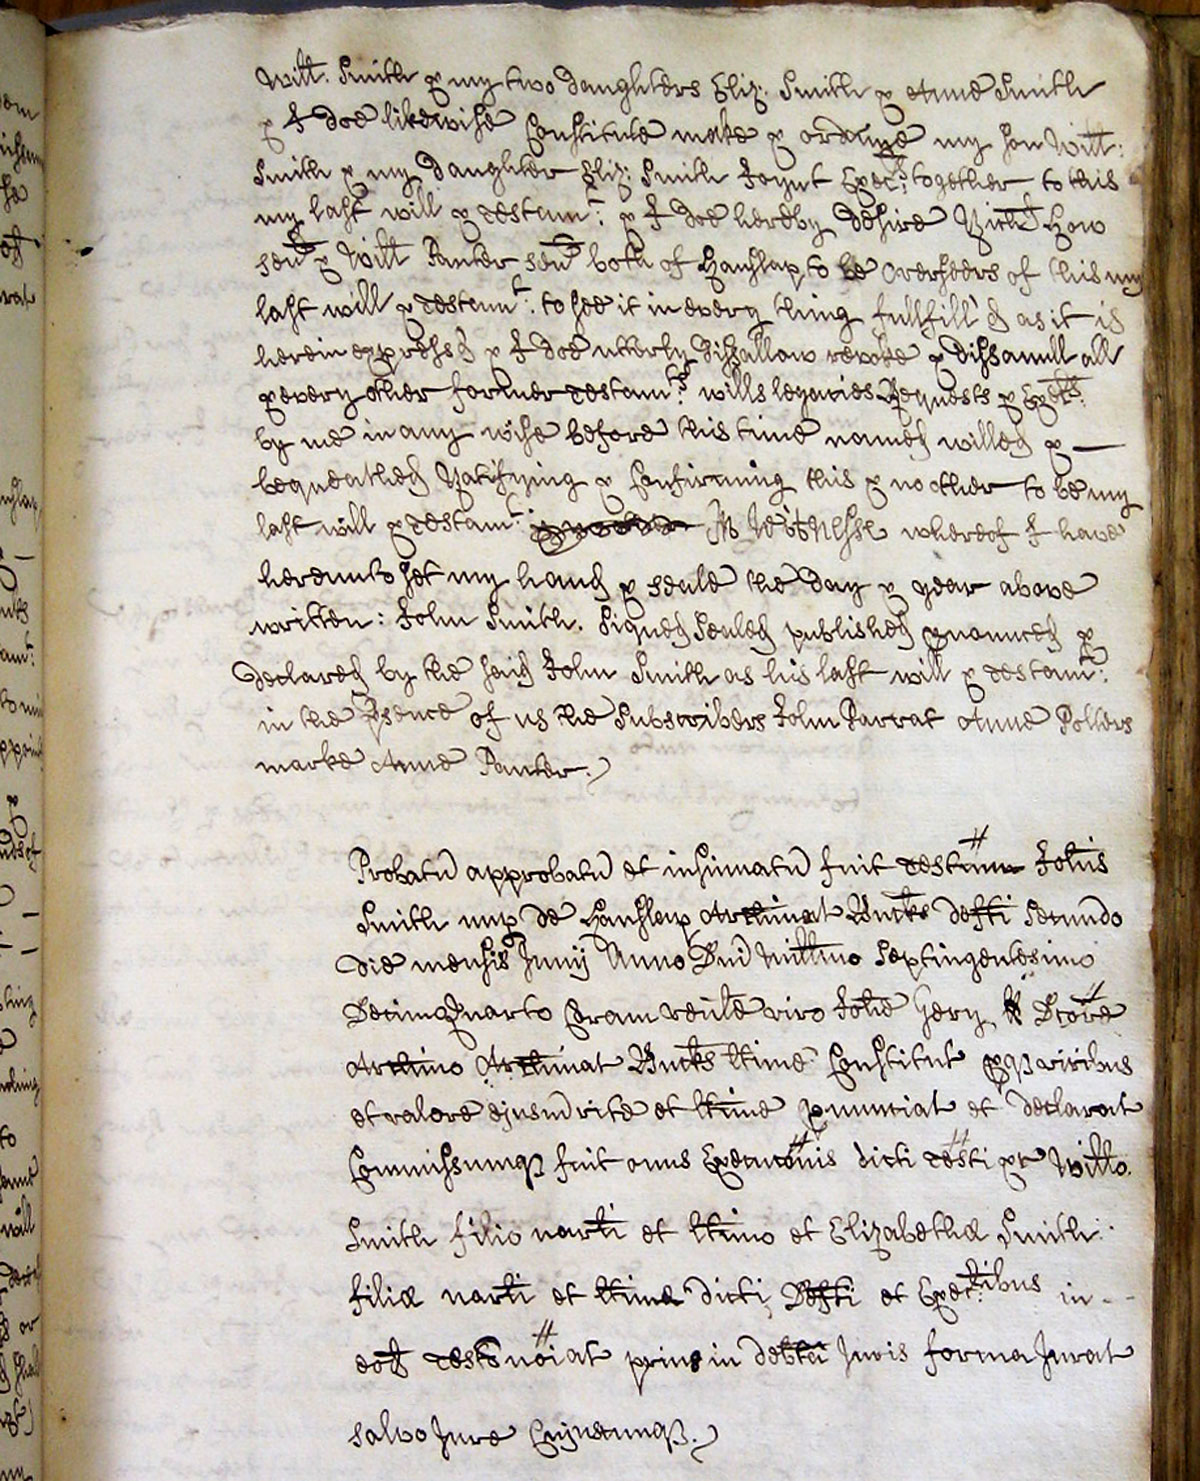 Will: Smith & my two Daughters Eliz: Smith & Anne Smith
& I doe likewise Constitute make & ordayne my son Will:
Smith & my Daughter Eliz: Smith Joynt Exec:rs together to this
my last will & testam:t & I doe hereby desire Rich:d How
sen:r & Will Panter sen:r both of Hanslap to be Overseers of this my
last will & testam:t to see it in every thing fullfill'd as it is
herein express'd & I doe utterly Dissallow revoke & dissanull all
& every other former testam:ts wills legacies Bequests & Exec:rs
by me in any wise before this time named willed & —
bequeathed Ratifying & Confirming this & no other to be my
last will & testam:t In Witnesse whereof I have
hereunto set my hand & seale the day & year above
written: John Smith. Signed Sealed published pnounced &
declared by the said John Smith as his last will & testam:t
in the psence of us the Subscribers John Parrat Anne Pollers
marke Anne Panter.
Probatu approbatu et insinuatu fuit testum Johis
Smith nup de Hanslap Archinat Bucks defti secundo
die mensis Junij Anno Dni Millimo Septingentesimo
Decimo Quarto Coram venle viro Johe Gery Dcore
Archino Archinat Bucks ltime Constitut pq viribus
et valore ejusm rite et ltime pnunciat et declarat
Commissumq fuit onus Execuconis dicti testi pr Willo
Smith filio narli et ltimo et Elizabethæ Smith
filiæ narli et ltimæ dicti Defti et Exec:ribus in
eod testo noiat prius in debta Juris forma Jurat
salvo Jure Cujuscunq.